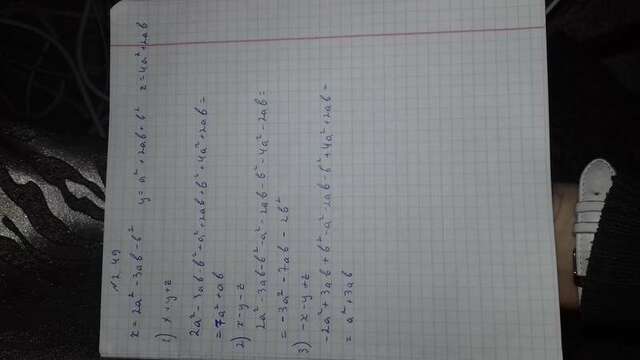 №2.49
x = 2a² - 3ab - b² y = a² + 2ab + b² z = 4a² + 2ab
1) x + y + z
2a² - 3ab - b² + a² + 2ab + b² + 4a² + 2ab =
= 7a² + ab
2) x - y - z
2a² - 3ab - b² - a² - 2ab - b² - 4a² - 2ab =
= -3a² - 7ab - 2b²
3) -x - y + z
-2a² + 3ab + b² - a² - 2ab - b² + 4a² + 2ab =
= a² + 3ab